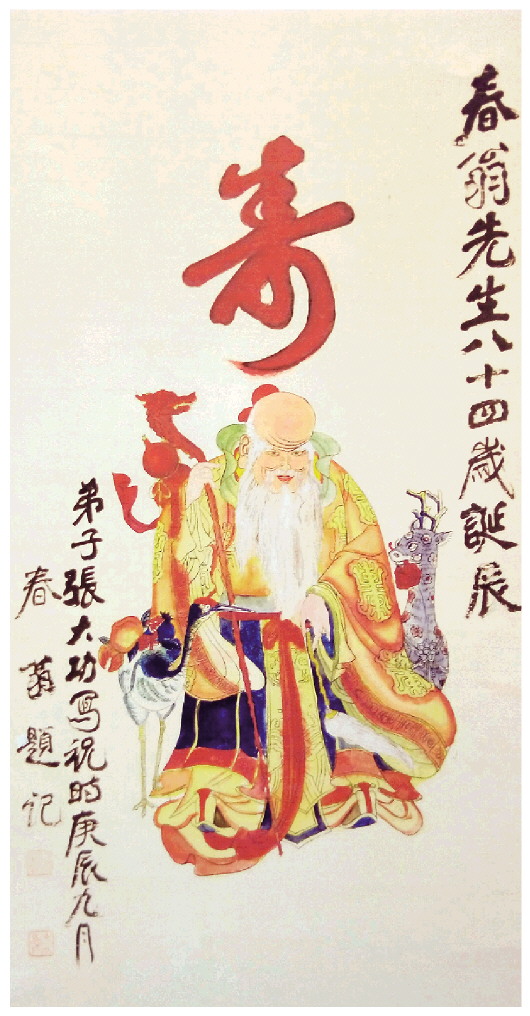 春翁先生八十四歲誕辰
寿
弟子張大功寫祝时庚辰九月
春翁題记